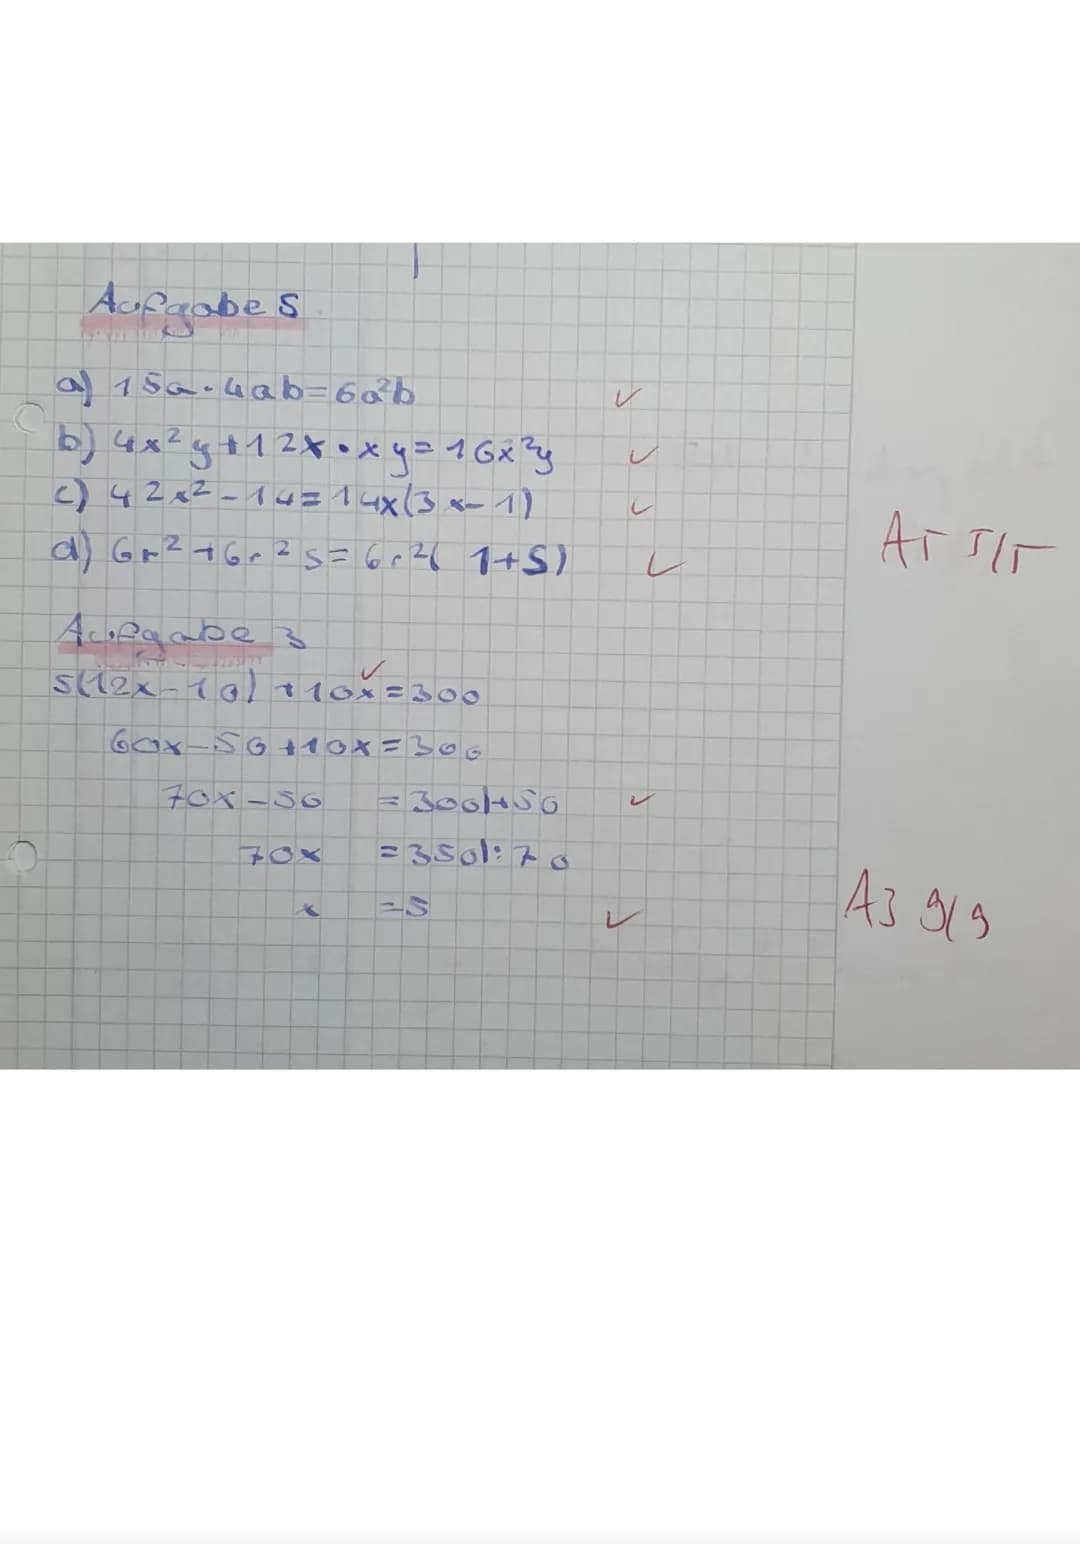 Aufgabe 5
a) 15a·4ab=60a²b ✓
b) 4x²y+12x·xy=16x²y ✓
c) 42x²-14=14x(3x-1) ✓
d) 6r²+6r²s=6r²(1+s) ✓
A5 5/5
Aufgabe 3
5(12x-10)+10x=300 ✓
60x-50+10x=300
70x-50 =300|+50 ✓
70x =350|:70
x =5 ✓
A3 9/9